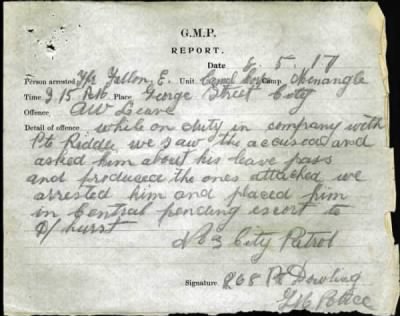 G.M.P.
REPORT.
Date 8. 5. 17
Person arrested Tpr Fallon, E. Unit Camel Corps Camp Menangle
Time 3 15 P.M. Place George Street City
Offence AW Leave
Detail of offence while on duty in company with
Pte Riddle we saw the accused and
asked him about his leave pass
and produced the ones attached we
arrested him and placed him
in Central pending escort to
D/hurst
No 3 City Patrol
Signature 268 Pte Dowling
Police